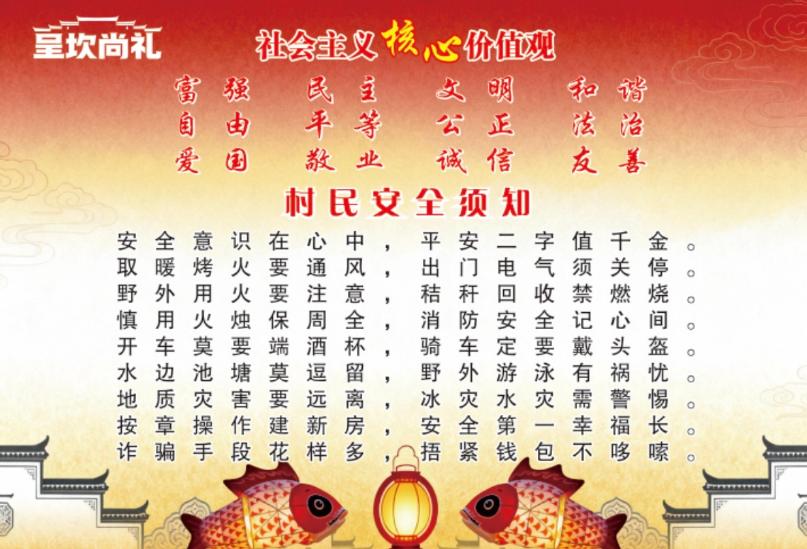 呈坎尚礼
社会主义核心价值观
富强 民主 文明 和谐
自由 平等 公正 法治
爱国 敬业 诚信 友善
村民安全须知
安全意识在心中，平安二字值千金。
取暖烤火要通风，出门电气须关停。
野外用火要注意，秸秆回收禁燃烧。
慎用火烛保周全，消防安全记心间。
开车莫要端酒杯，骑车定要戴头盔。
水边池塘莫逗留，野外游泳有祸忧。
地质灾害要远离，冰灾水灾需警惕。
按章操作建新房，安全第一幸福长。
诈骗手段花样多，捂紧钱包不哆嗦。